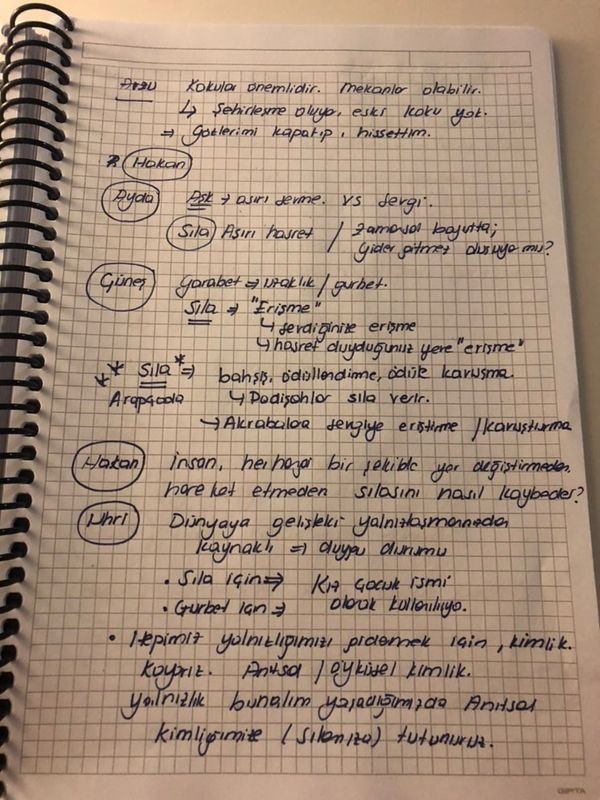 Arzu Kokular önemlidir. Mekanlar olabilir.
↳ Şehirleşme oluyo, eski koku yok.
→ Gözlerimi kapatıp, hissettim.
Hakan
Ayda Aşk → aşırı sevme. vs sevgi.
Sıla Aşırı hasret / zamansal boyutta;
gider gitmez oluşuyo mu?
Güneş Garabet ⇒ uzaklık / gurbet.
Sıla ⇒ "Erişme"
↳ sevdiğinize erişme
↳ hasret duyduğunuz yere "erişme"
** Sıla* ⇒ bahşiş, ödüllendirme, ödüle kavuşma.
Arapçada ↳ Padişahlar sıla verir.
↳ Akrabalga sevgiye eriştirme / kavuşturma
Hakan İnsan, herhangi bir şekilde yer değiştirmeden,
hareket etmeden sılasını nasıl kaybeder?
Uhri Dünyaya gelişteki yalnızlaşmamızdan
kaynaklı ⇒ duygu durumu
• Sıla için ⇒ Kız çocuk ismi
• Gurbet için ⇒ olarak kullanılıyo.
• Hepimiz yalnızlığımızı gidermek için, kimlik.
koyarız. Anıtsal / öyküsel kimlik.
yalnızlık bunalım yaşadığımızda Anıtsal
kimliğimize (sılamıza) tutunuruz.
GIPTA